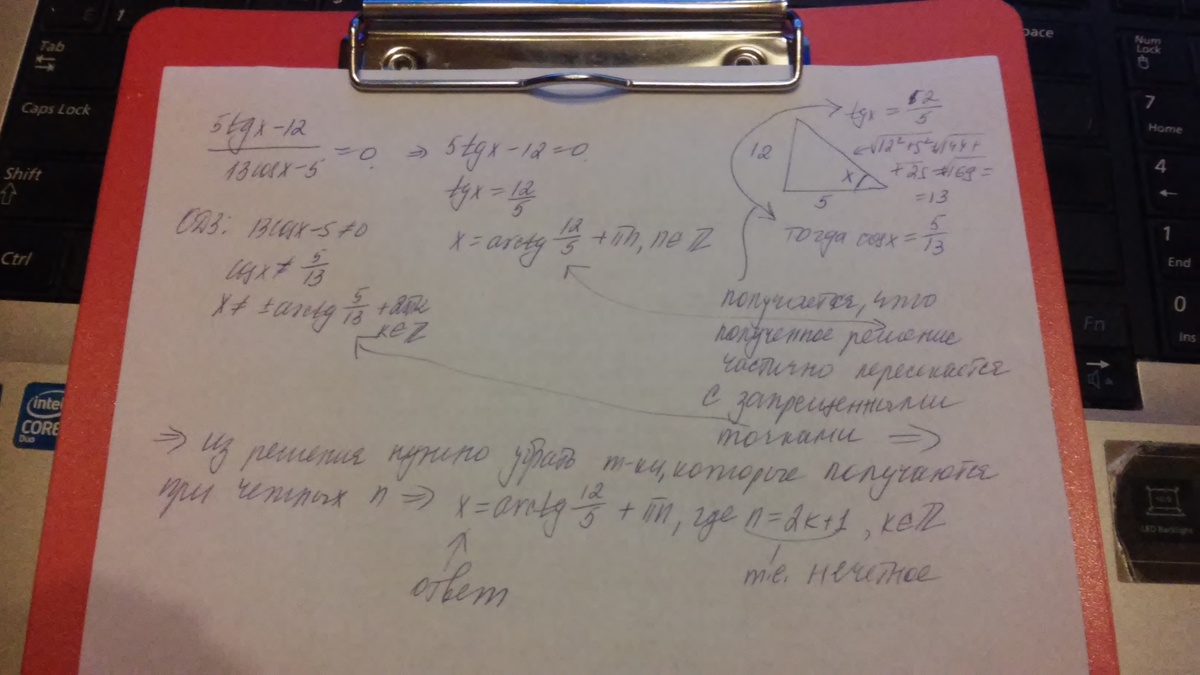 Tab
Caps Lock
Shift
Ctrl
intel
CORE
Duo
1
Num
Lock
7
Home
4
1
End
0
Ins
Fn
(5tgx-12)/(13cosx-5) = 0 ⇒ 5tgx-12=0
tgx = 12/5
x = arctg 12/5 + πn, n∈ℤ
ОДЗ: 13cosx-5≠0
cosx ≠ 5/13
x ≠ ±arctg 5/13 + 2πk
k∈ℤ
tgx = 12/5
12
x
5
√12²+5² = √144+
+25 = √169 =
=13
тогда cosx = 5/13
получается, что
полученное решение
частично пересекается
с запрещенными
точками ⇒
⇒ из решения нужно убрать т-ки, которые получаются
при четных n ⇒ x = arctg 12/5 + πn, где n=2k+1, k∈ℤ
ответ
т.е. нечетное